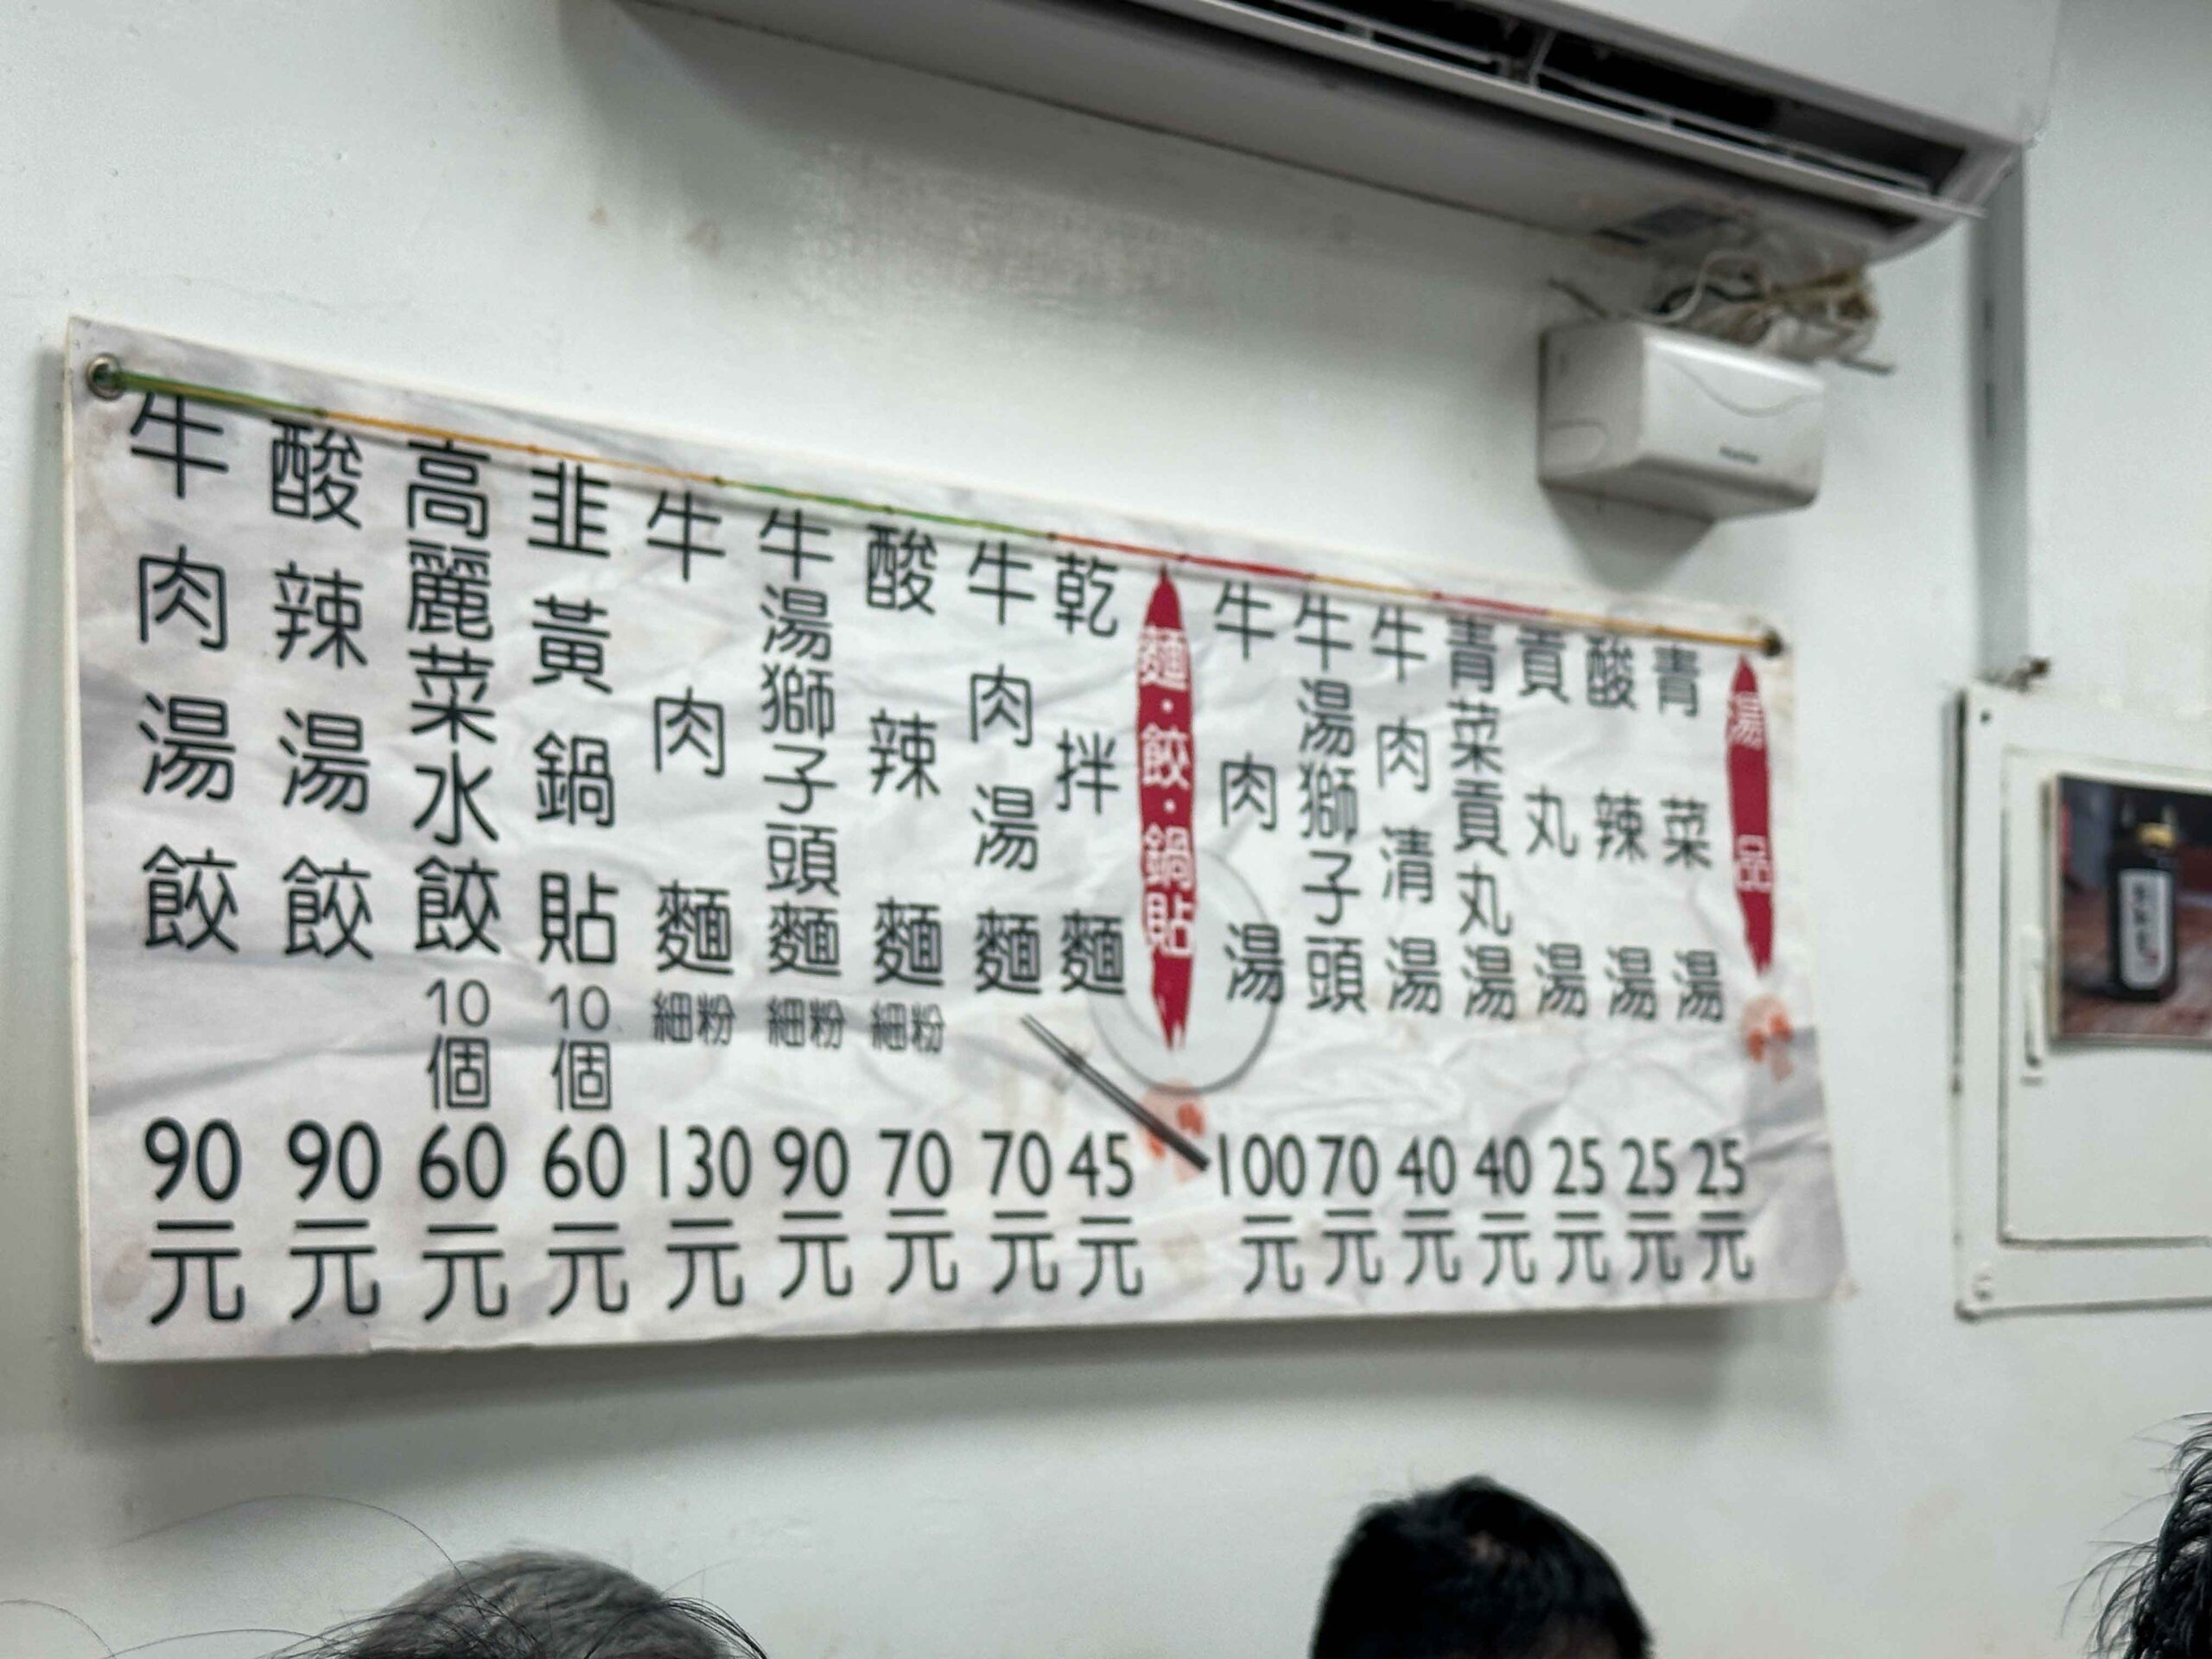 湯品
青菜湯 25元
酸辣湯 25元
貢丸湯 25元
青菜貢丸湯 40元
牛肉清湯 40元
牛湯獅子頭 70元
牛肉湯 100元
麵・餃・鍋貼
乾拌麵 45元
牛肉湯麵 70元
酸辣麵 細粉 70元
牛湯獅子頭麵 細粉 90元
牛肉麵 細粉 130元
韭黃鍋貼 10個 60元
高麗菜水餃 10個 60元
酸辣湯餃 90元
牛肉湯餃 90元